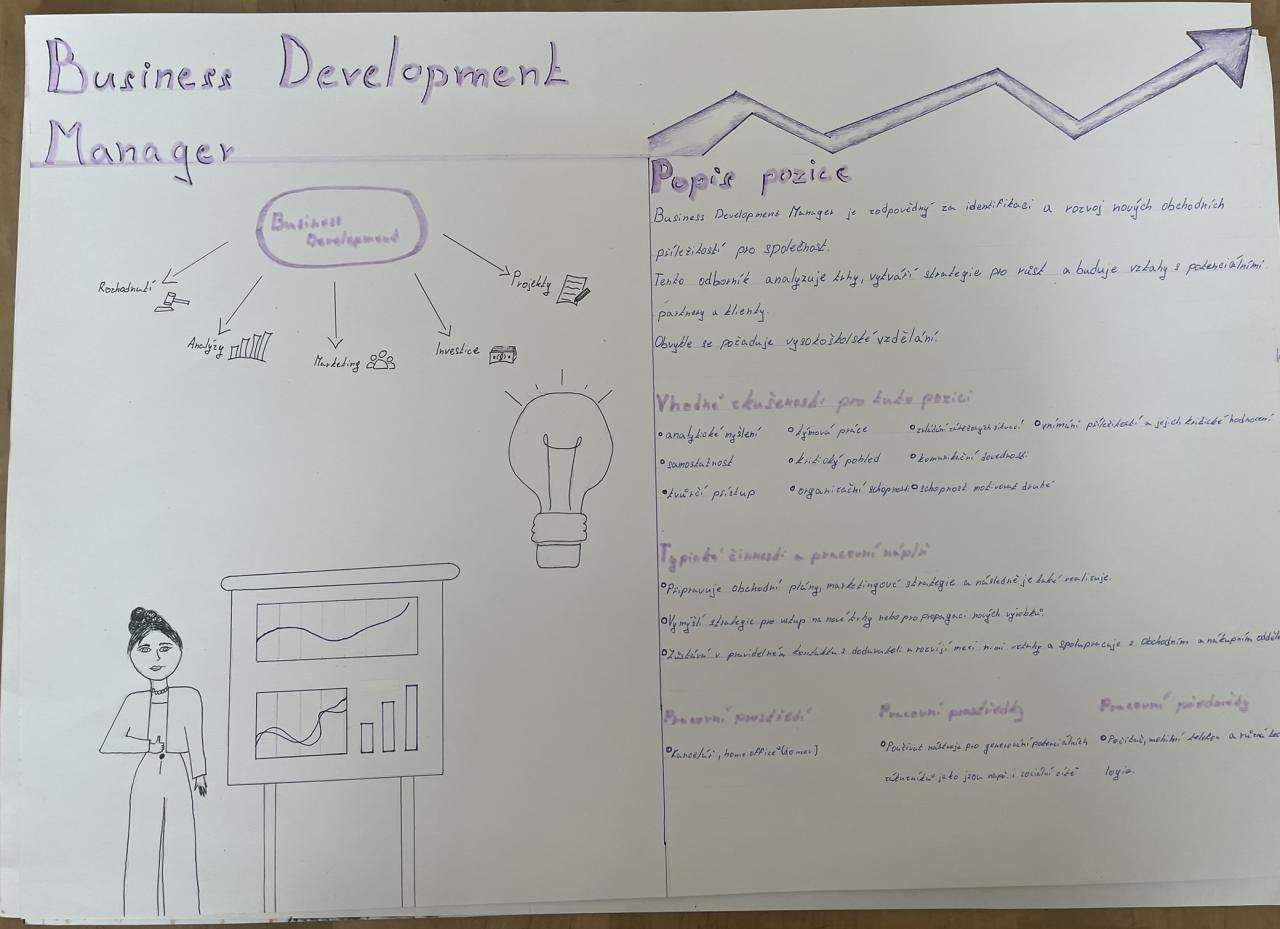 Business Development
Manager
Business
Development
Rozhodnutí
Analýzy
Marketing
Investice
Projekty
Popis pozice
Business Development Manager je zodpovědný za identifikaci a rozvoj nových obchodních
příležitostí pro společnost.
Tento odborník analyzuje trhy, vytváří strategie pro růst a buduje vztahy s potenciálními
partnery a klienty.
Obvykle se počaduje vysokoškolské vzdělání.
Vhodné zkušenosti pro tuto pozici
analytické myšlení
týmová práce
zvládání zátěžových situací
vnímání příležitostí a jejich kritické hodnocení
samostatnost
kritický pohled
komunikační dovednosti
tvůrčí přístup
organizační schopnosti
schopnost motivovat druhé
Typické činnosti a pracovní náplň
Připravuje obchodní plány, marketingové strategie a následně je také realizuje.
Vymýšlí strategie pro vstup na nové trhy nebo pro propagaci nových výrobků.
Zůstává v pravidelném kontaktu s dodavateli a rozvíjí mezi nimi vztahy a spolupracuje s obchodním a nákupním
Pracovní prostředí
Pracovní prostředky
Pracovní předměty
Kancelář, home office (domov)
Používat nástroje pro generování potenciálních
zákazníků jako jsou např. i sociální sítě
Počítač, mobilní telefon a různá
logie.